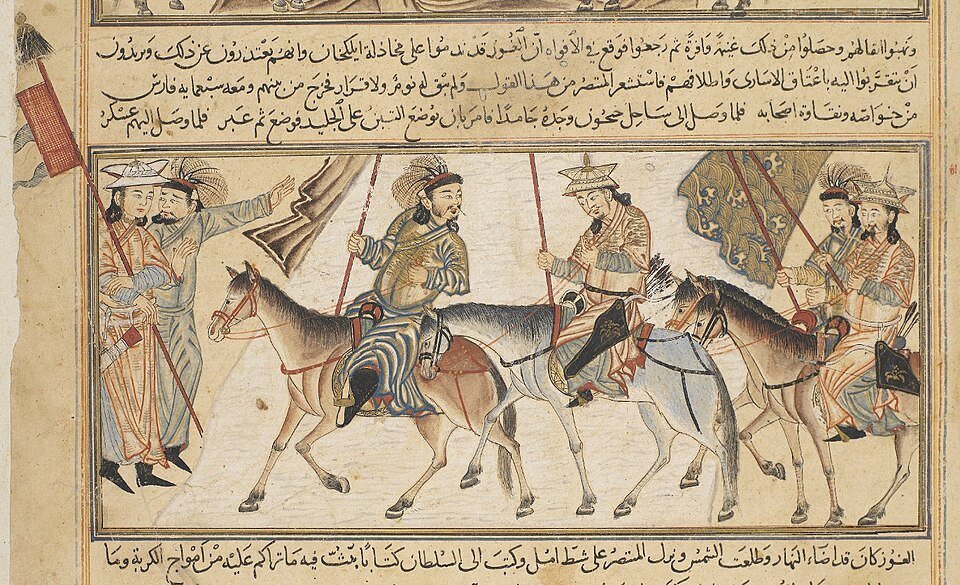 اثقالهم وحصلوا من ذلك غنيمة وافرة ثم رجعوا فوقع في الافواه أن الغور قد ندموا على مخاذلة ايلكخان وانهم يعتذرون عن ذلك ويريدون
ان يتقربوا اليه باعتاق الاسارى واطلاقهم فاستشعر المنتصر من هذا القول ولم يبق له نوم ولا قرار فخرج من بينهم ومعه سبعمايه فارس
من خواصه ونقاوة اصحابه فلما وصل الى ساحل جيحون وجده جامدا فامر بان يوضع التبن على الجليد فوضع ثم عبر فلما وصل اليهم عسكر
الغور كان قد اضاء النهار وطلعت الشمس ونزل المنتصر على شط امل وكتب الى السلطان كتابا يبث فيه ما تراكم عليه من امواج الكربة وما